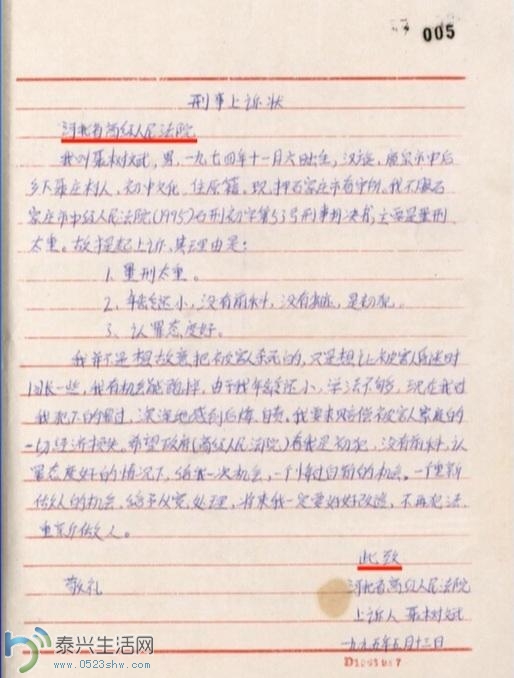 005
刑事上诉状
河北省高级人民法院
我叫聂树斌，男，一九七四年十一月六日出生，汉族，鹿泉市申后
乡下聂庄村人，初中文化，住原籍，现押石家庄市看守所，我不服石
家庄市中级人民法院(1995)石刑初字第53号刑事判决书，主要是量刑
太重。故提起上诉，其理由是：
1. 量刑太重。
2. 年龄还小，没有前科，没有劣迹，是初犯。
3. 认罪态度好。
我并不是想故意把被害人杀死的，只是想让被害人昏迷时
间长一些，我有机会能跑掉，由于我年龄还小，学法不够，现在我对
我犯下的罪过，深深地感到后悔、自责。我要求赔偿被害人家庭的
一切经济损失。希望政府(高级人民法院)看我是初犯，没有前科，认
罪态度好的情况下，给我一次机会，一个悔过自新的机会。一个重新
做人的机会，给予从宽处理，将来我一定要好好改造，不再犯法，
重新做人。
此致
敬礼
河北省高级人民法院
上诉人 聂树斌
一九九五年五月十三日
泰兴生活网
www.0523shw.com